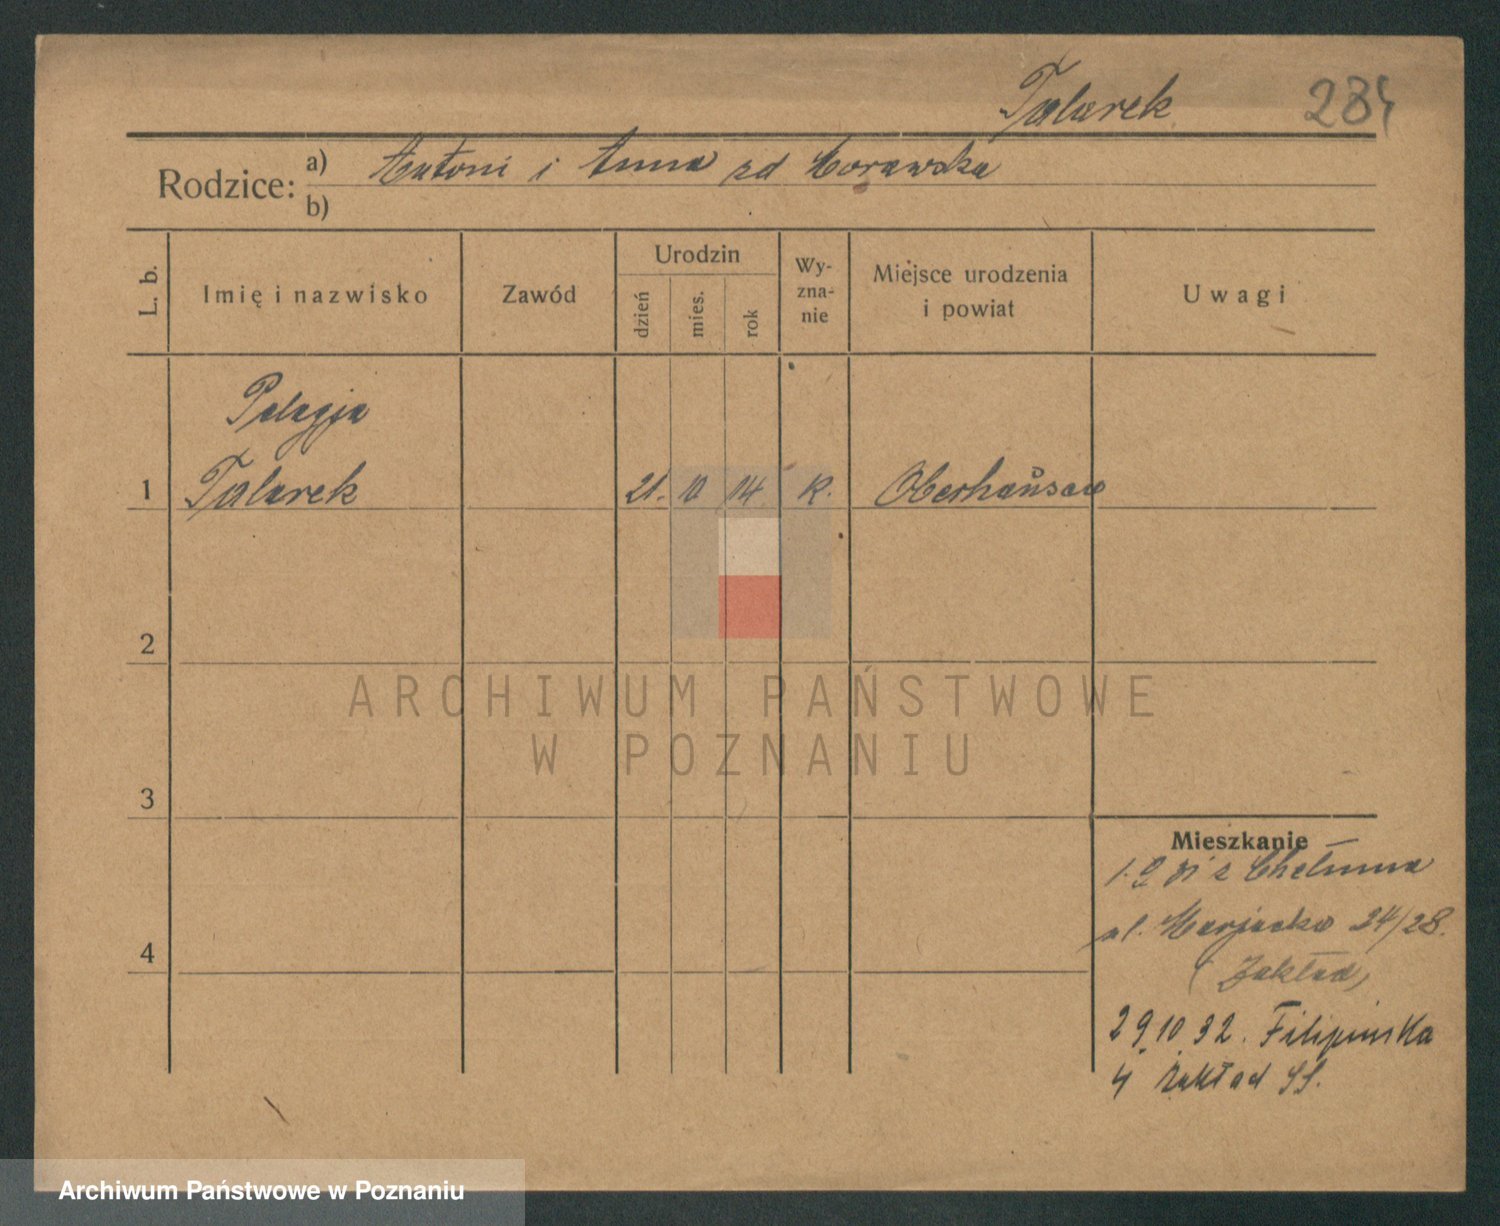 Talarek 284
Rodzice: a) Antoni i Anna zd Morawska
b)
L. b.
Imię i nazwisko
Zawód
Urodzin
dzień
mies.
rok
Wy-
zna-
nie
Miejsce urodzenia
i powiat
Uwagi
Pelagja
1 Talarek 21. 10 14 K. Oberhausen
2
3
4
Mieszkanie
1.9 31 z Chełmna
ul. Marjacka 24/28.
(Zakład)
29.10 32. Filipinska
4 Zakład SS.
ARCHIWUM PAŃSTWOWE
W POZNANIU
Archiwum Państwowe w Poznaniu